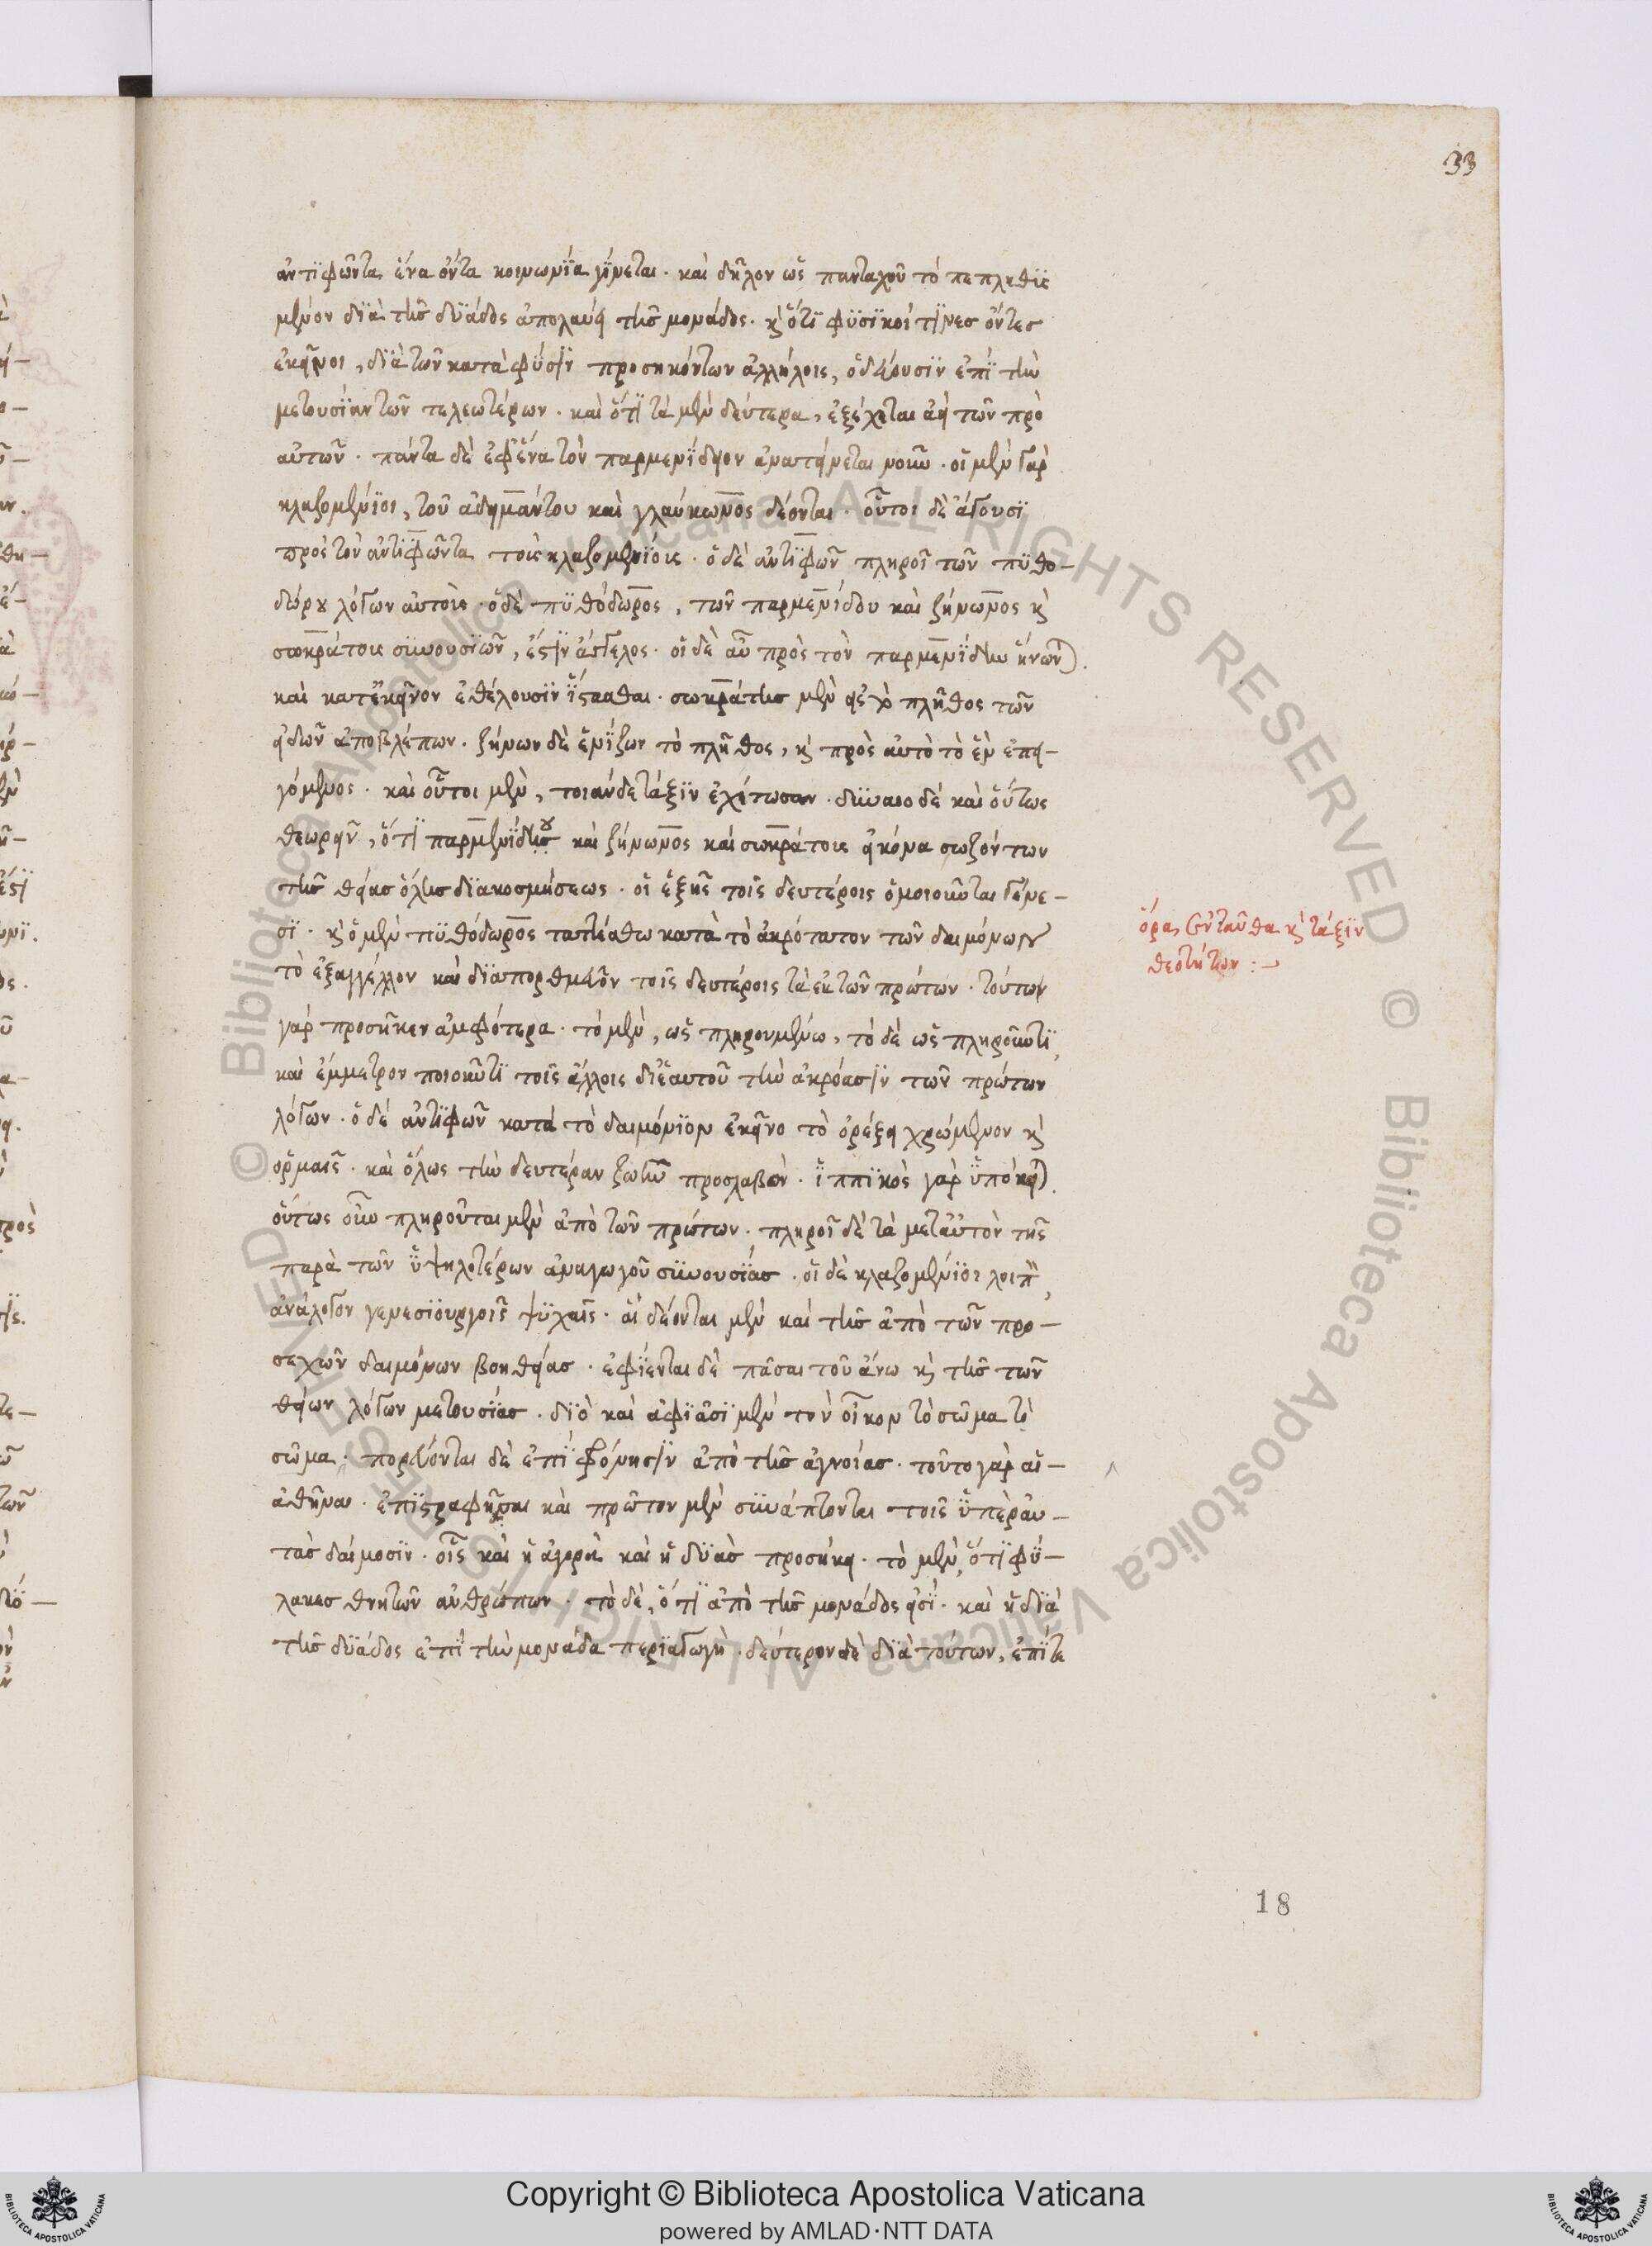 33
ἀντϊφῶντα ἕνα ὄντα κοινωνΐα γΐνεται · καὶ δῆλον ὡς πανταχοῦ τὸ πεπληθυσ
μένον δϊὰ τῆς δϋάδος ἀπολαύει τῆς μονάδος · κ̀ ὅτϊ φϋσϊκοί τϊνεσ ὄντες
ἐκεῖνοι, δϊὰ τῶν κατὰ φύσϊν προσηκόντων ἀλλήλοις, ὁδεύουσϊν ἐπῒ τὴν
μετουσΐαν τῶν τελεωτέρων · καὶ ὅτϊ τὰ μὲν δεύτερα, ἐξέχεται ἀεὶ τῶν πρὸ
αὐτῶν · πάντα δὲ ἐφ' ἕνα τὸν παρμενΐδειον ἀνατείνεται νοῦν · οἱ μὲν γὰρ
κλαζομένϊοι, τοῦ ἀδημάντου καὶ γλαύκωνος δέονται · οὗτοι δὲ ἄγουσϊ
πρὸς τὸν ἀντϊφῶντα τοὺς κλαζομενΐους · ὁ δὲ ἀντϊφῶν πληροῖ τῶν πϋθο-
δώρου λόγων αὐτοὺς · ὁ δὲ πϋθόδωρος, τῶν παρμενίδου καὶ ζήνωνος κ̀
σωκράτους συνουσϊῶν, ἐστϊν ἄγγελος · οἱ δὲ αὖ πρὸς τὸν παρμενΐδην ἥνωνται.
καὶ κατ' ἐκεῖνον ἐθέλουσϊν ἵστασθαι · σωκράτης μὲν εἰς τὸ πλῆθος τῶν
εἰδῶν ἀποβλέπων · ζήνων δὲ ἑνΐζων τὸ πλῆθος, κ̀ πρὸς αὐτὸ τὸ ἓν ἐπει-
γόμενος · καὶ οὗτοι μὲν, τοιάνδε τάξϊν ἐχέτωσαν · δύναιο δὲ καὶ οὕτως
θεωρεῖν, ὅτϊ παρμενΐδου καὶ ζήνωνος καὶ σωκράτους εἰκόνα σωζόντων
τῆς θείας ὅλης δϊακοσμήσεως · οἱ ἑξῆς τοῖς δευτέροις ὁμοιοῦνται γένε-
σϊ · κ̀ ὁ μὲν πϋθόδωρος ταττέσθω κατὰ τὸ ἀκρότατον τῶν δαιμόνων
τὸ ἐξαγγέλλον καὶ δϊαπορθμεῦον τοῖς δευτέροις τὰ ἐκ τῶν πρώτων · τούτων
γὰρ προσῆκεν ἀμφότερα · τὸ μὲν, ὡς πληρουμένω, τὸ δὲ ὡς πληροῦντϊ
καὶ ἔμμετρον ποιοῦντϊ τοῖς ἄλλοις δϊ' ἑαυτοῦ τὴν ἀκρόασϊν τῶν πρώτων
λόγων · ὁ δὲ ἀντϊφῶν κατὰ τὸ δαιμόνϊον ἐκεῖνο τὸ ὀρέξει χρώμενον κ̀
ὁρμαῖς · καὶ ὅλως τὴν δευτέραν ζωὴν προσλαβὸν · ἱππϊκὸς γὰρ ὑπόκειται.
οὕτως οὖν πληροῦται μὲν ἀπὸ τῶν πρώτων · πληροῖ δὲ τὰ μετ' αὐτὸν τῆς
παρὰ τῶν ὑψηλοτέρων ἀναγωγοῦ συνουσΐας · οἱ δὲ κλαζομένϊοι λοιπὸν,
ἀνάλογον γενεσϊουργοῖς ψϋχαῖς · αἳ δέονται μὲν καὶ τῆς ἀπὸ τῶν προ-
σεχῶν δαιμόνων βοηθείας · ἐφΐενται δὲ πᾶσαι τοῦ ἄνω κ̀ τῆς τῶν
θείων λόγων μετουσίας · δϊὸ καὶ ἀφϊᾶσϊ μὲν τὸν οἶκον τὸ σῶμα τὸ
σῶμα · πορεύονται δὲ ἐπῒ φρόνησϊν ἀπὸ τῆς ἀγνοίας · τοῦτο γὰρ αἱ-
ἀθῆναι · ἐπϊστραφῆσαι καὶ πρῶτον μὲν συνάπτονται τοῖς ὑπὲρ αὐ-
τὰς δαίμοσϊν · οἷς καὶ ἡ ἀγορὰ καὶ ἡ δϋὰς προσήκει · τὸ μὲν, ὅτϊ φϋ-
λακεσ θνητῶν ἀνθρώπων · τὸ δὲ, ὅτϊ ἀπὸ τῆς μονάδος εἰσῒ · καὶ ἡ δϊὰ
τῆς δϋάδος ἐπῒ τὴν μονάδα περϊαγωγὴ · δεύτερον δὲ δϊὰ τούτων, ἐπΐ τε
ὅρα ἐνταῦθα κ̀ τάξϊν
θεοτήτων :-
18
© Biblioteca Apostolica Vaticana ALL RIGHTS RESERVED
Copyright © Biblioteca Apostolica Vaticana
powered by AMLAD·NTT DATA